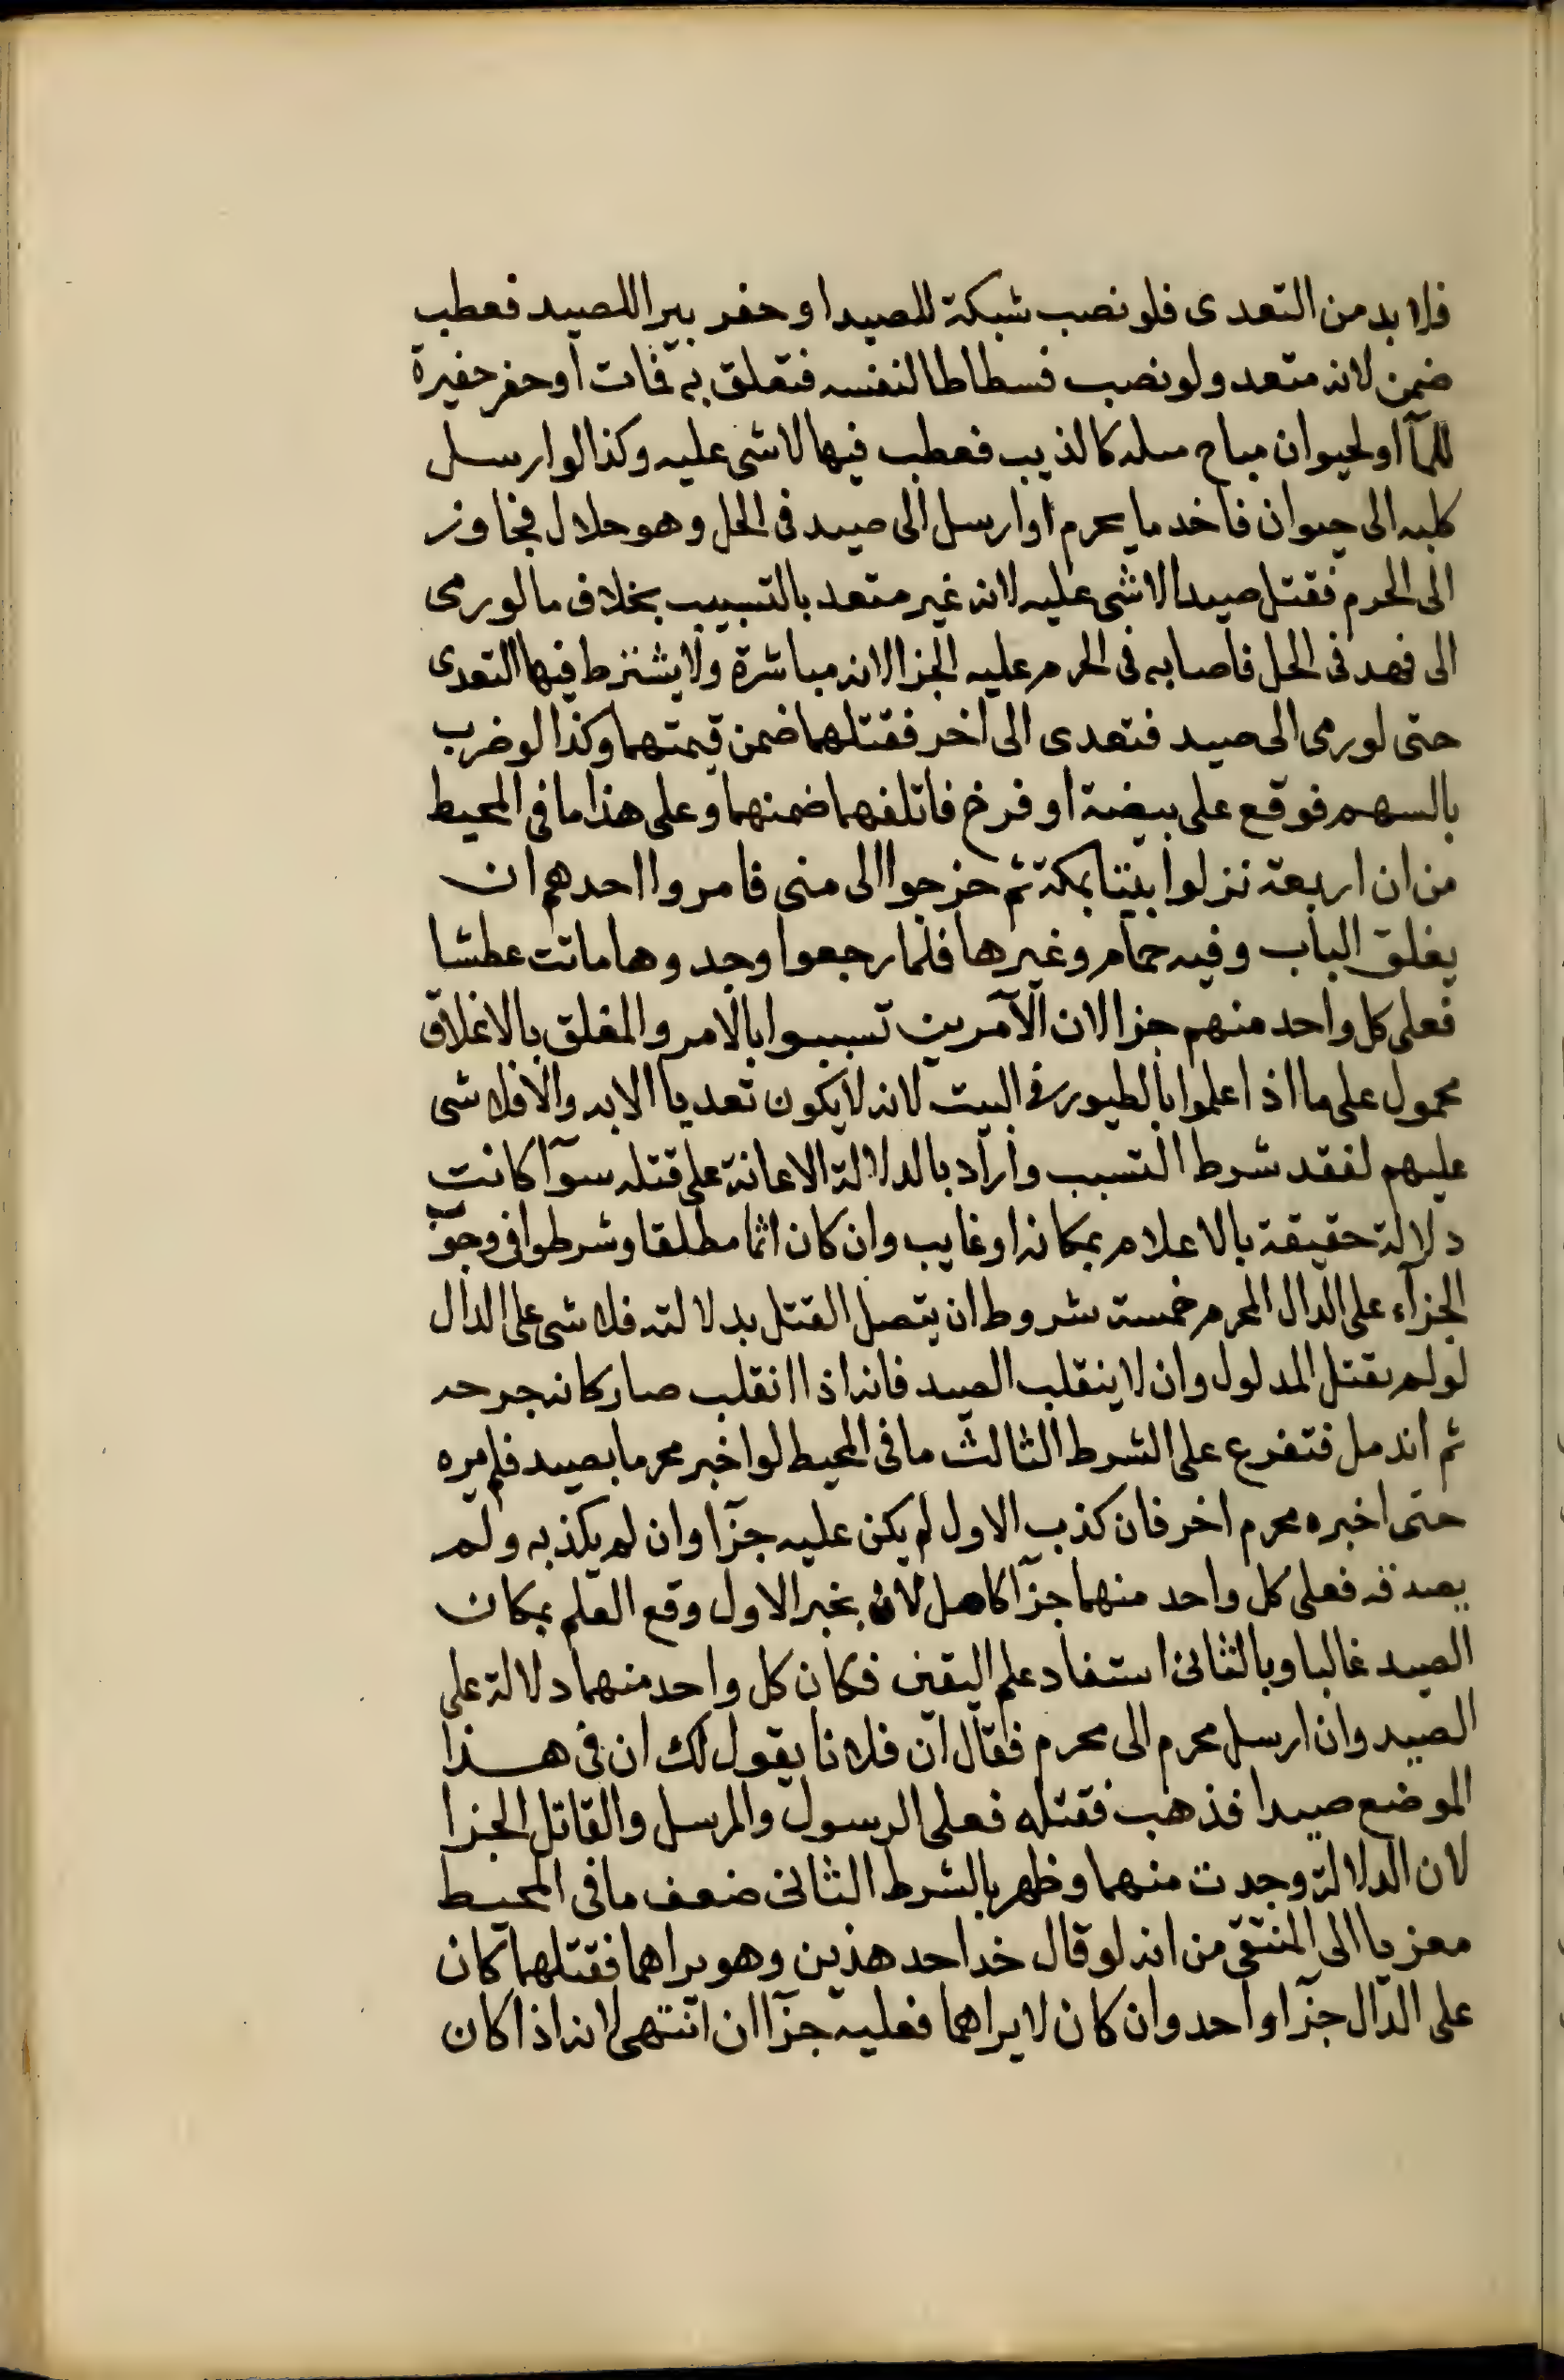 فلا بد من التعدى فلو نصب شبكة للصيد او حفر بيرا للصيد فعطب
ضمن لانه متعد ولو نصب فسطاطا لنفسه فتعلق به فمات او حفر حفيرة
للمآ او لحيوان مباح مىله كالذيب فعطب فيها لا شى عليه وكذا لو ارسل
كلبه الى حيوان فاخد ما يحرم او ارسل الى صيد فى الحل وهو حلال فجاوز
الى الحرم فقتل صيدا لا شى عليه لانه غير متعد بالتسبيب بخلاف ما لو رمى
الى فهد فى الحل فاصابه فى الحرم عليه الجزا لانه مباشرة ولا يشترط فيها التعدى
حتى لو رمى الى صيد فتعدى الى اخر فقتلهما ضمن قيمتهما وكذا لو ضرب
بالسهم فوقع على بيضة او فرخ فاتلفهما ضمنهما وعلى هذا ما فى المحيط
من ان اربعة نزلوا بيتا بمكة ثم خرجوا الى منى فامروا احدهم ان
يغلق الباب وفيه حمام وغيرها فلما رجعوا وجدوها ماتت عطشا
فعلى كل واحد منهم جزا لان الآمرين تسببوا بالامر والمغلق بالاغلاق
محمول على ما اذا علموا بالطيور فى البيت لانه لا يكون تعديا الا به والا فلا شى
عليهم لفقد شرط التسبب واراد بالدلالة الاعانة على قتله سوآ كانت
دلالة حقيقة بالاعلام بمكانه او غايب وان كان اثما مطلقا وشرطوا فى وجوب
الجزآء على الدال المحرم خمسة شروط ان يتصل القتل بدلالته فلا شى على الدال
لو لم يقتل المدلول وان لا ينقلب الصيد فانه اذا انقلب صار كانه جرحه
ثم اندمل فتفرع على الشرط الثالث ما فى المحيط لو اخبر محرما بصيد فلم يره
حتى اخبره محرم اخر فان كذب الاول لم يكن عليه جزآ وان لم يكذبه ولم
يصدقه فعلى كل واحد منهما جزآ كامل لان بخبر الاول وقع العلم بمكان
الصيد غالبا وبالثانى استفاد علم اليقين فكان كل واحد منهما دلالة على
الصيد وان ارسل محرم الى محرم فقال ان فلانا يقول لك ان فى هذا
الموضع صيدا فذهب فقتله فعلى الرسول والمرسل والقاتل الجزا
لان الدلالة وجدت منهما وظهر بالشرط الثانى ضعف ما فى المحيط
معزيا الى المنتقى من انه لو قال خد احد هذين وهو يراهما فقتلهما كان
على الدال جزآ واحد وان كان لا يراهما فعليه جزآان انتهى لانه اذا كان